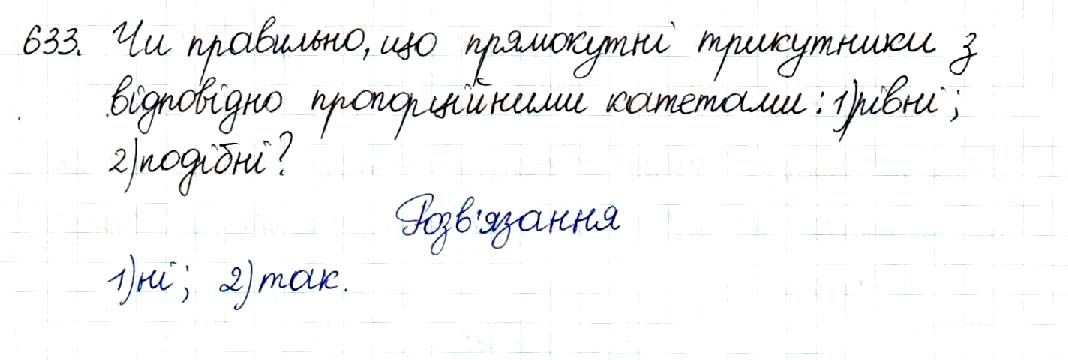 633. Чи правильно, що прямокутні трикутники з
відповідно пропорційними катетами: 1) рівні;
2) подібні?
Розв'язання
1) ні; 2) так.